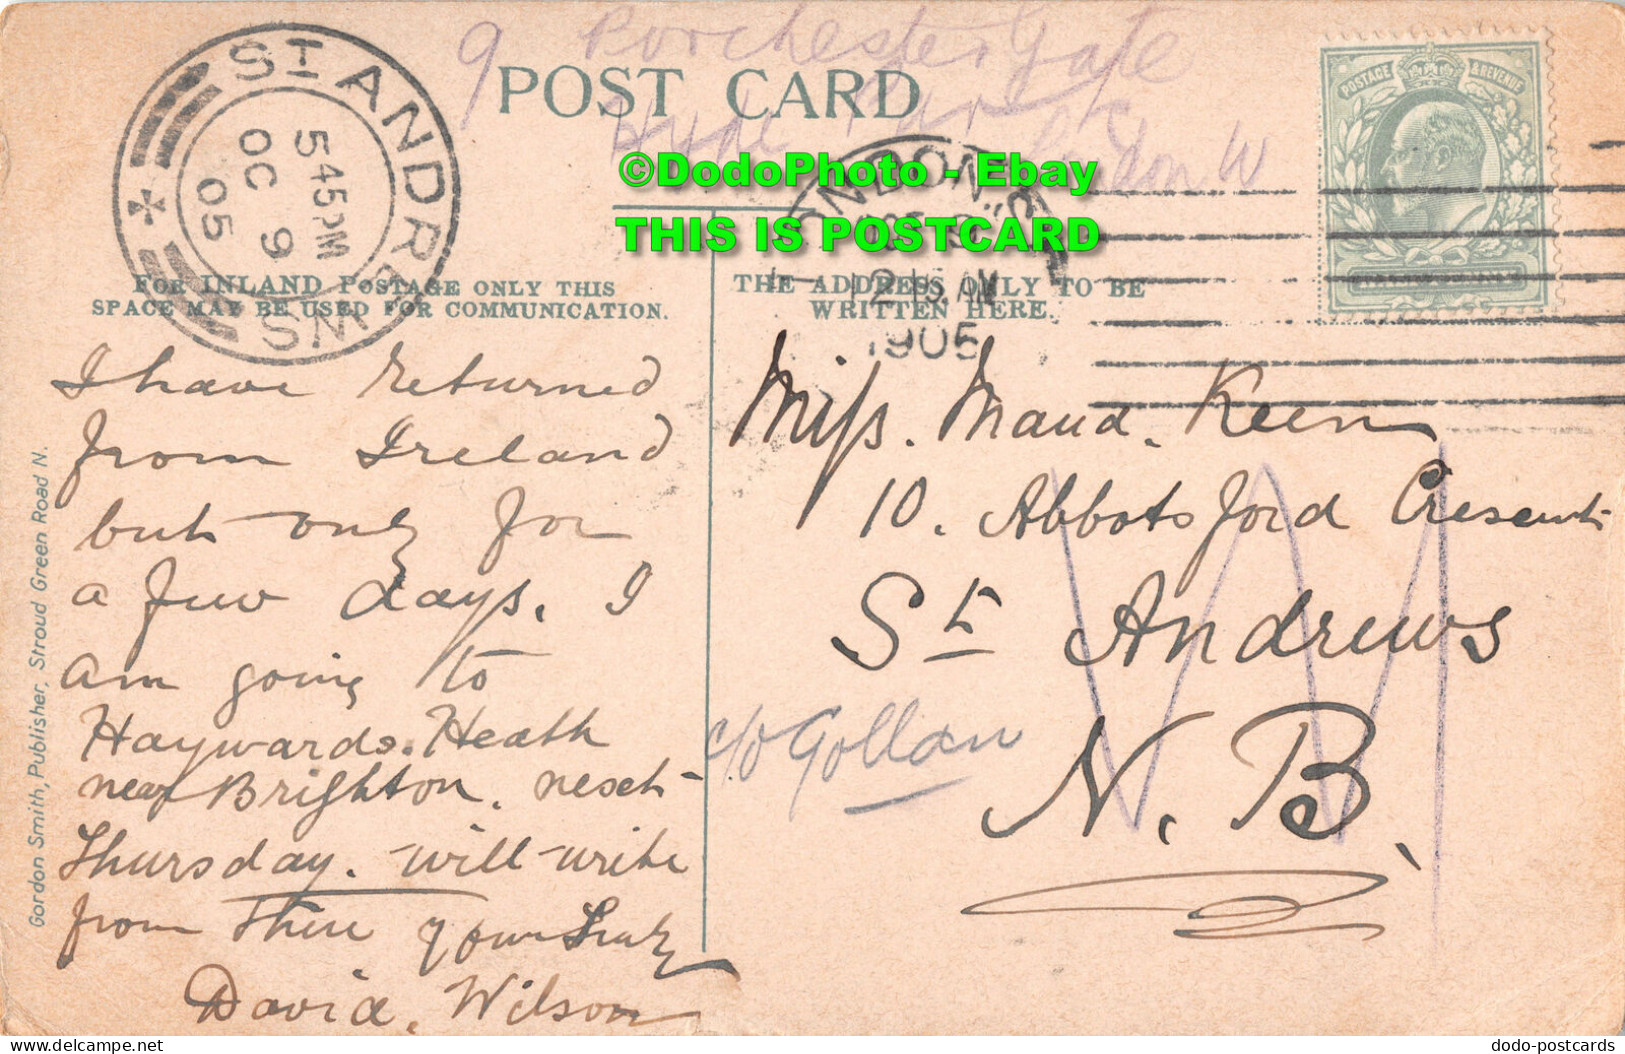 9 Porchester Gate
Hyde Park
London W
POST CARD
©DodoPhoto - Ebay
THIS IS POSTCARD
ST ANDREWS
545PM
OC 9
05
LONDON. S
OCT 9
12 15 AM
1905
POSTAGE & REVENUE
FOR INLAND POSTAGE ONLY THIS
SPACE MAY BE USED FOR COMMUNICATION.
THE ADDRESS ONLY TO BE
WRITTEN HERE.
I have returned
from Ireland
but only for
a few days. I
am going to
Haywards. Heath
near Brighton. next
Thursday. will write
from there yours
David. Wilson
Miss. Maud. Keen
10. Abbotsford Cresent
St Andrews
N. B.
c/o Gollan
Gordon Smith, Publisher, Stroud Green Road N.
dodo-postcards